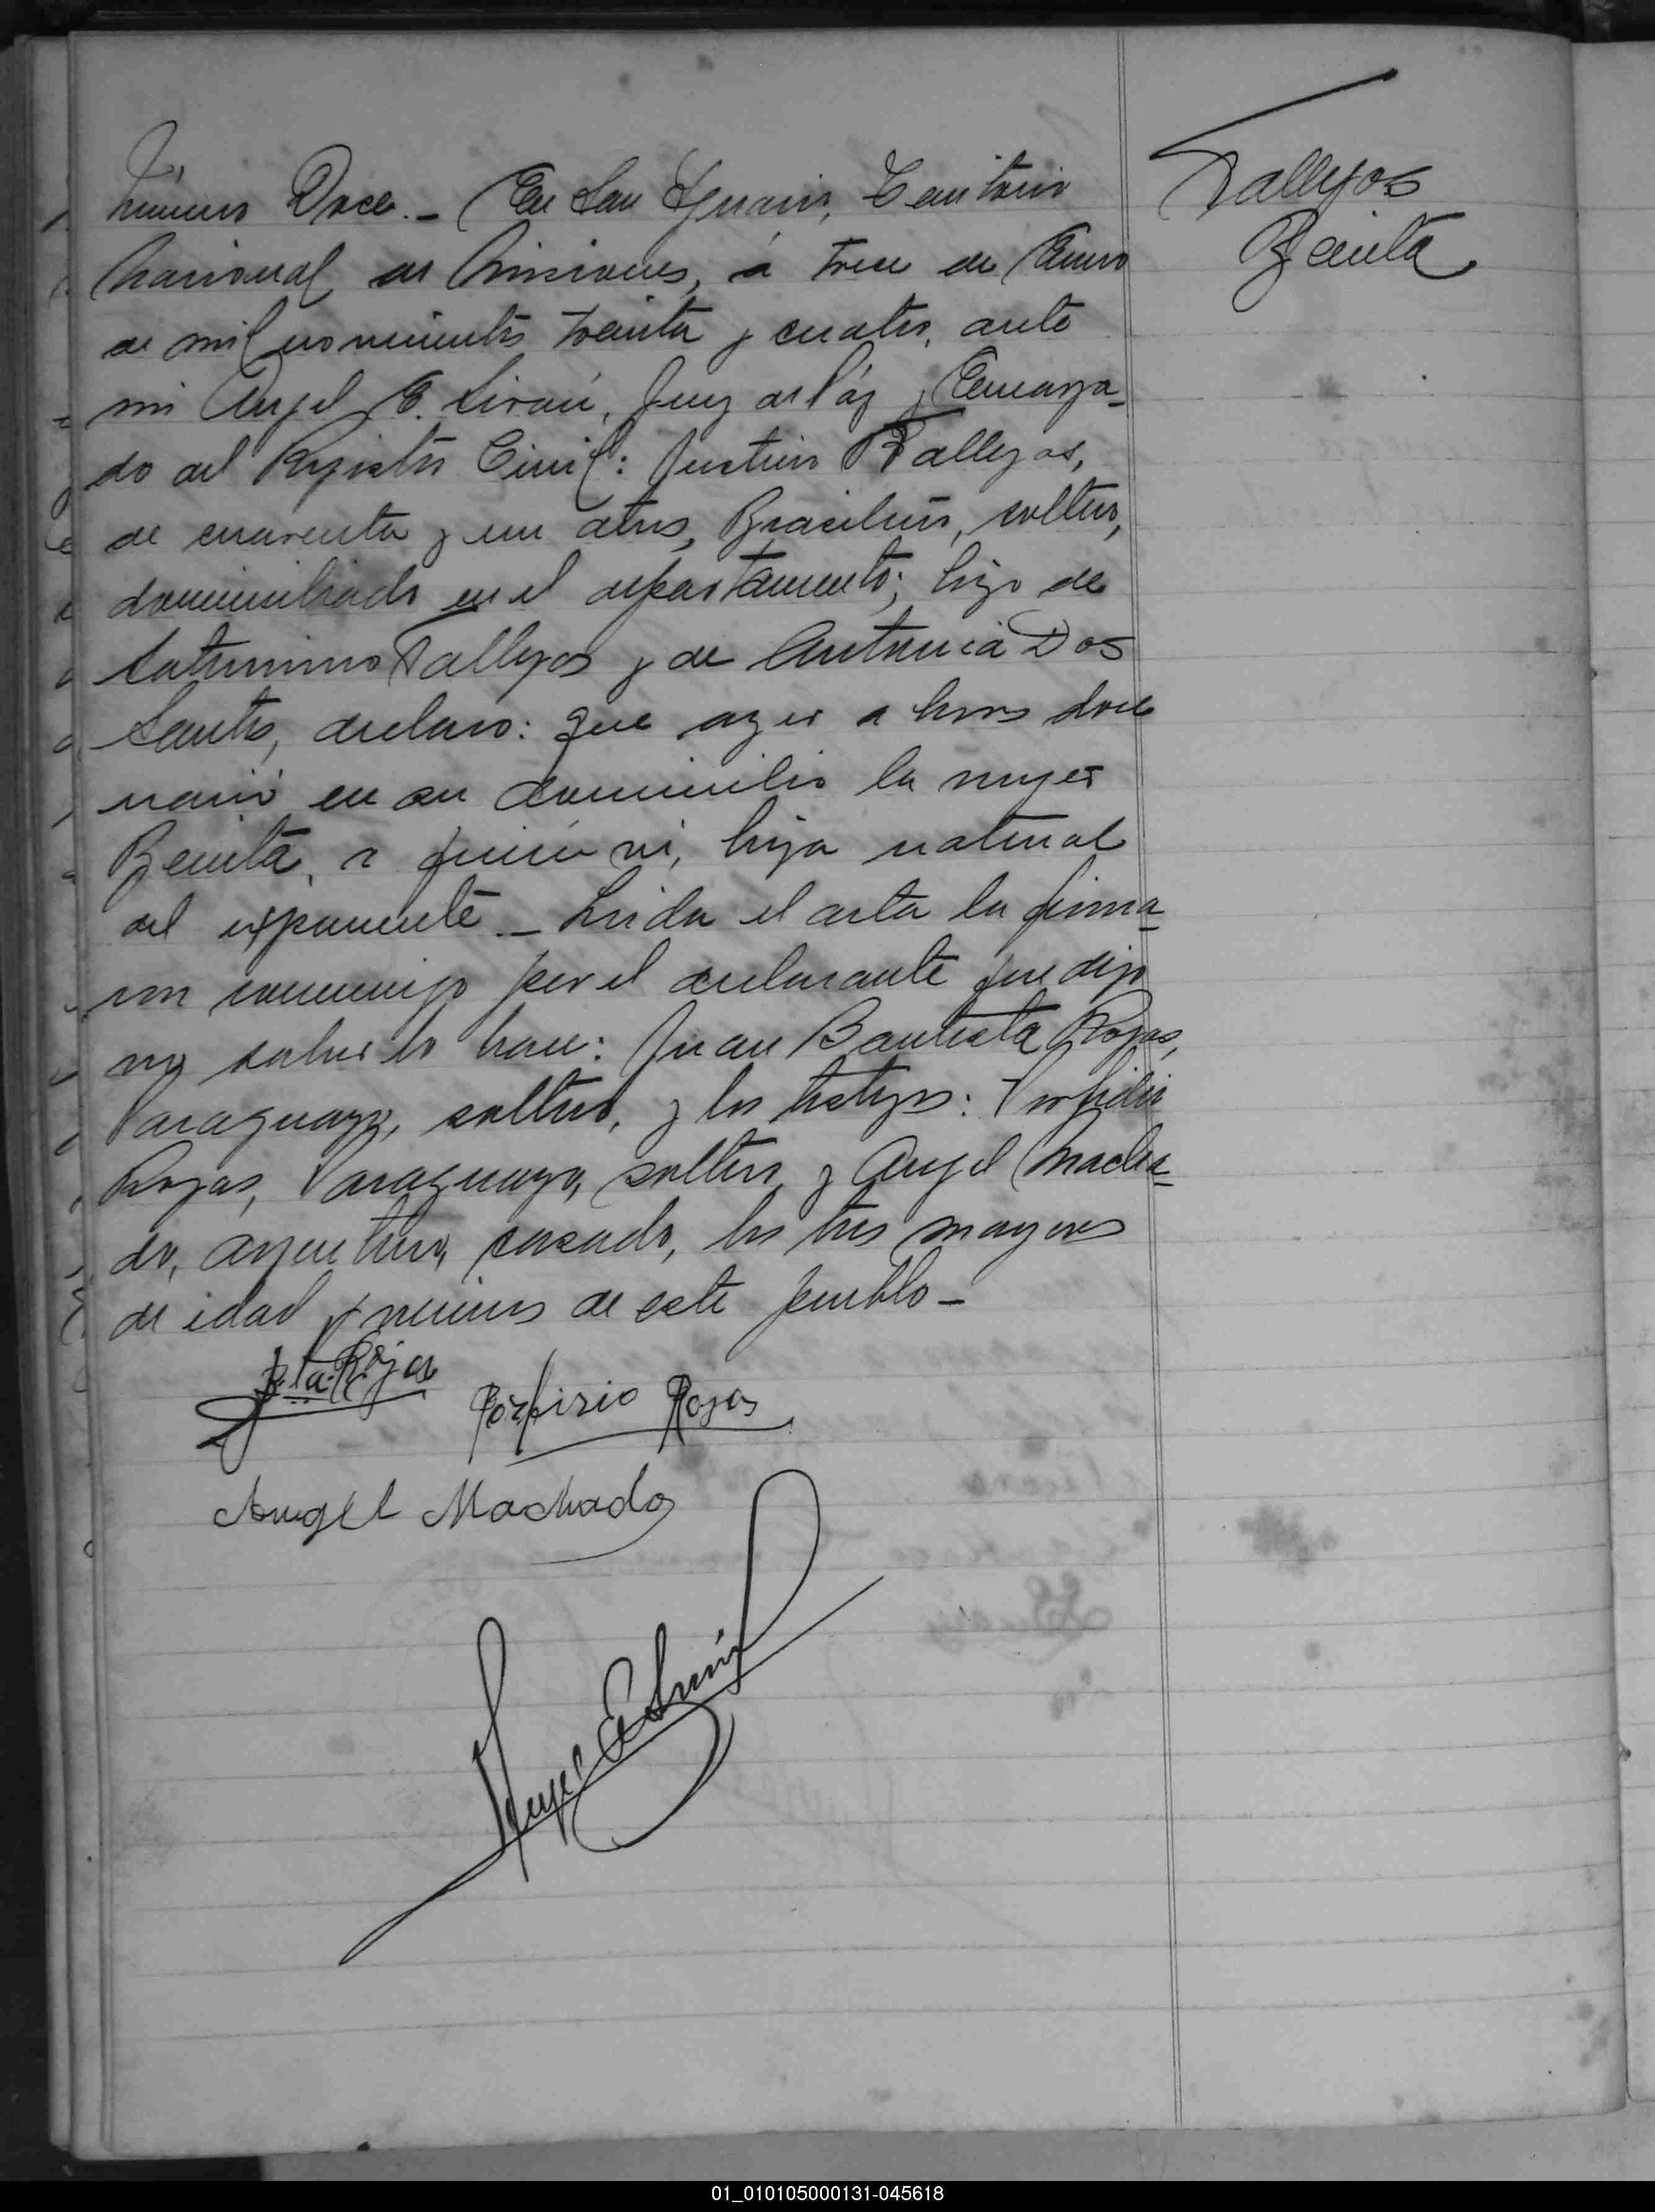 Número Doce.- En San Ignacio, Territorio
Nacional de Misiones, á trece de Enero
de mil novecientos treinta y cuatro, ante
mi Angel E. , Juez de Páz y Encarga-
do del Registro Civil: Justino Tallejos,
de cuarenta y un años, Brasileño, soltero,
domiciliado en el departamento; hijo de
Saturnino Tallejos y de Antonia Dos
Santos, declaro: Que ayer a horas doce
nació en su domicilio la mujer
Benita, a quién ví, hija natural
del exponente.- Leida el acta la firma-
ron conmigo por el declarante que dijo
no saber lo hace: Juan Bautista Rojas,
Paraguayo, soltero, y los testigos: Porfidio
Rojas, Paraguayo, soltero y Angel Macha-
do, argentino, casado, los tres mayores
de edad y vecinos de este pueblo-
Tallejos
Benita
J. Bta. Rojas
Porfirio Rojas
Angel Machado
Angel E
01_010105000131-045618